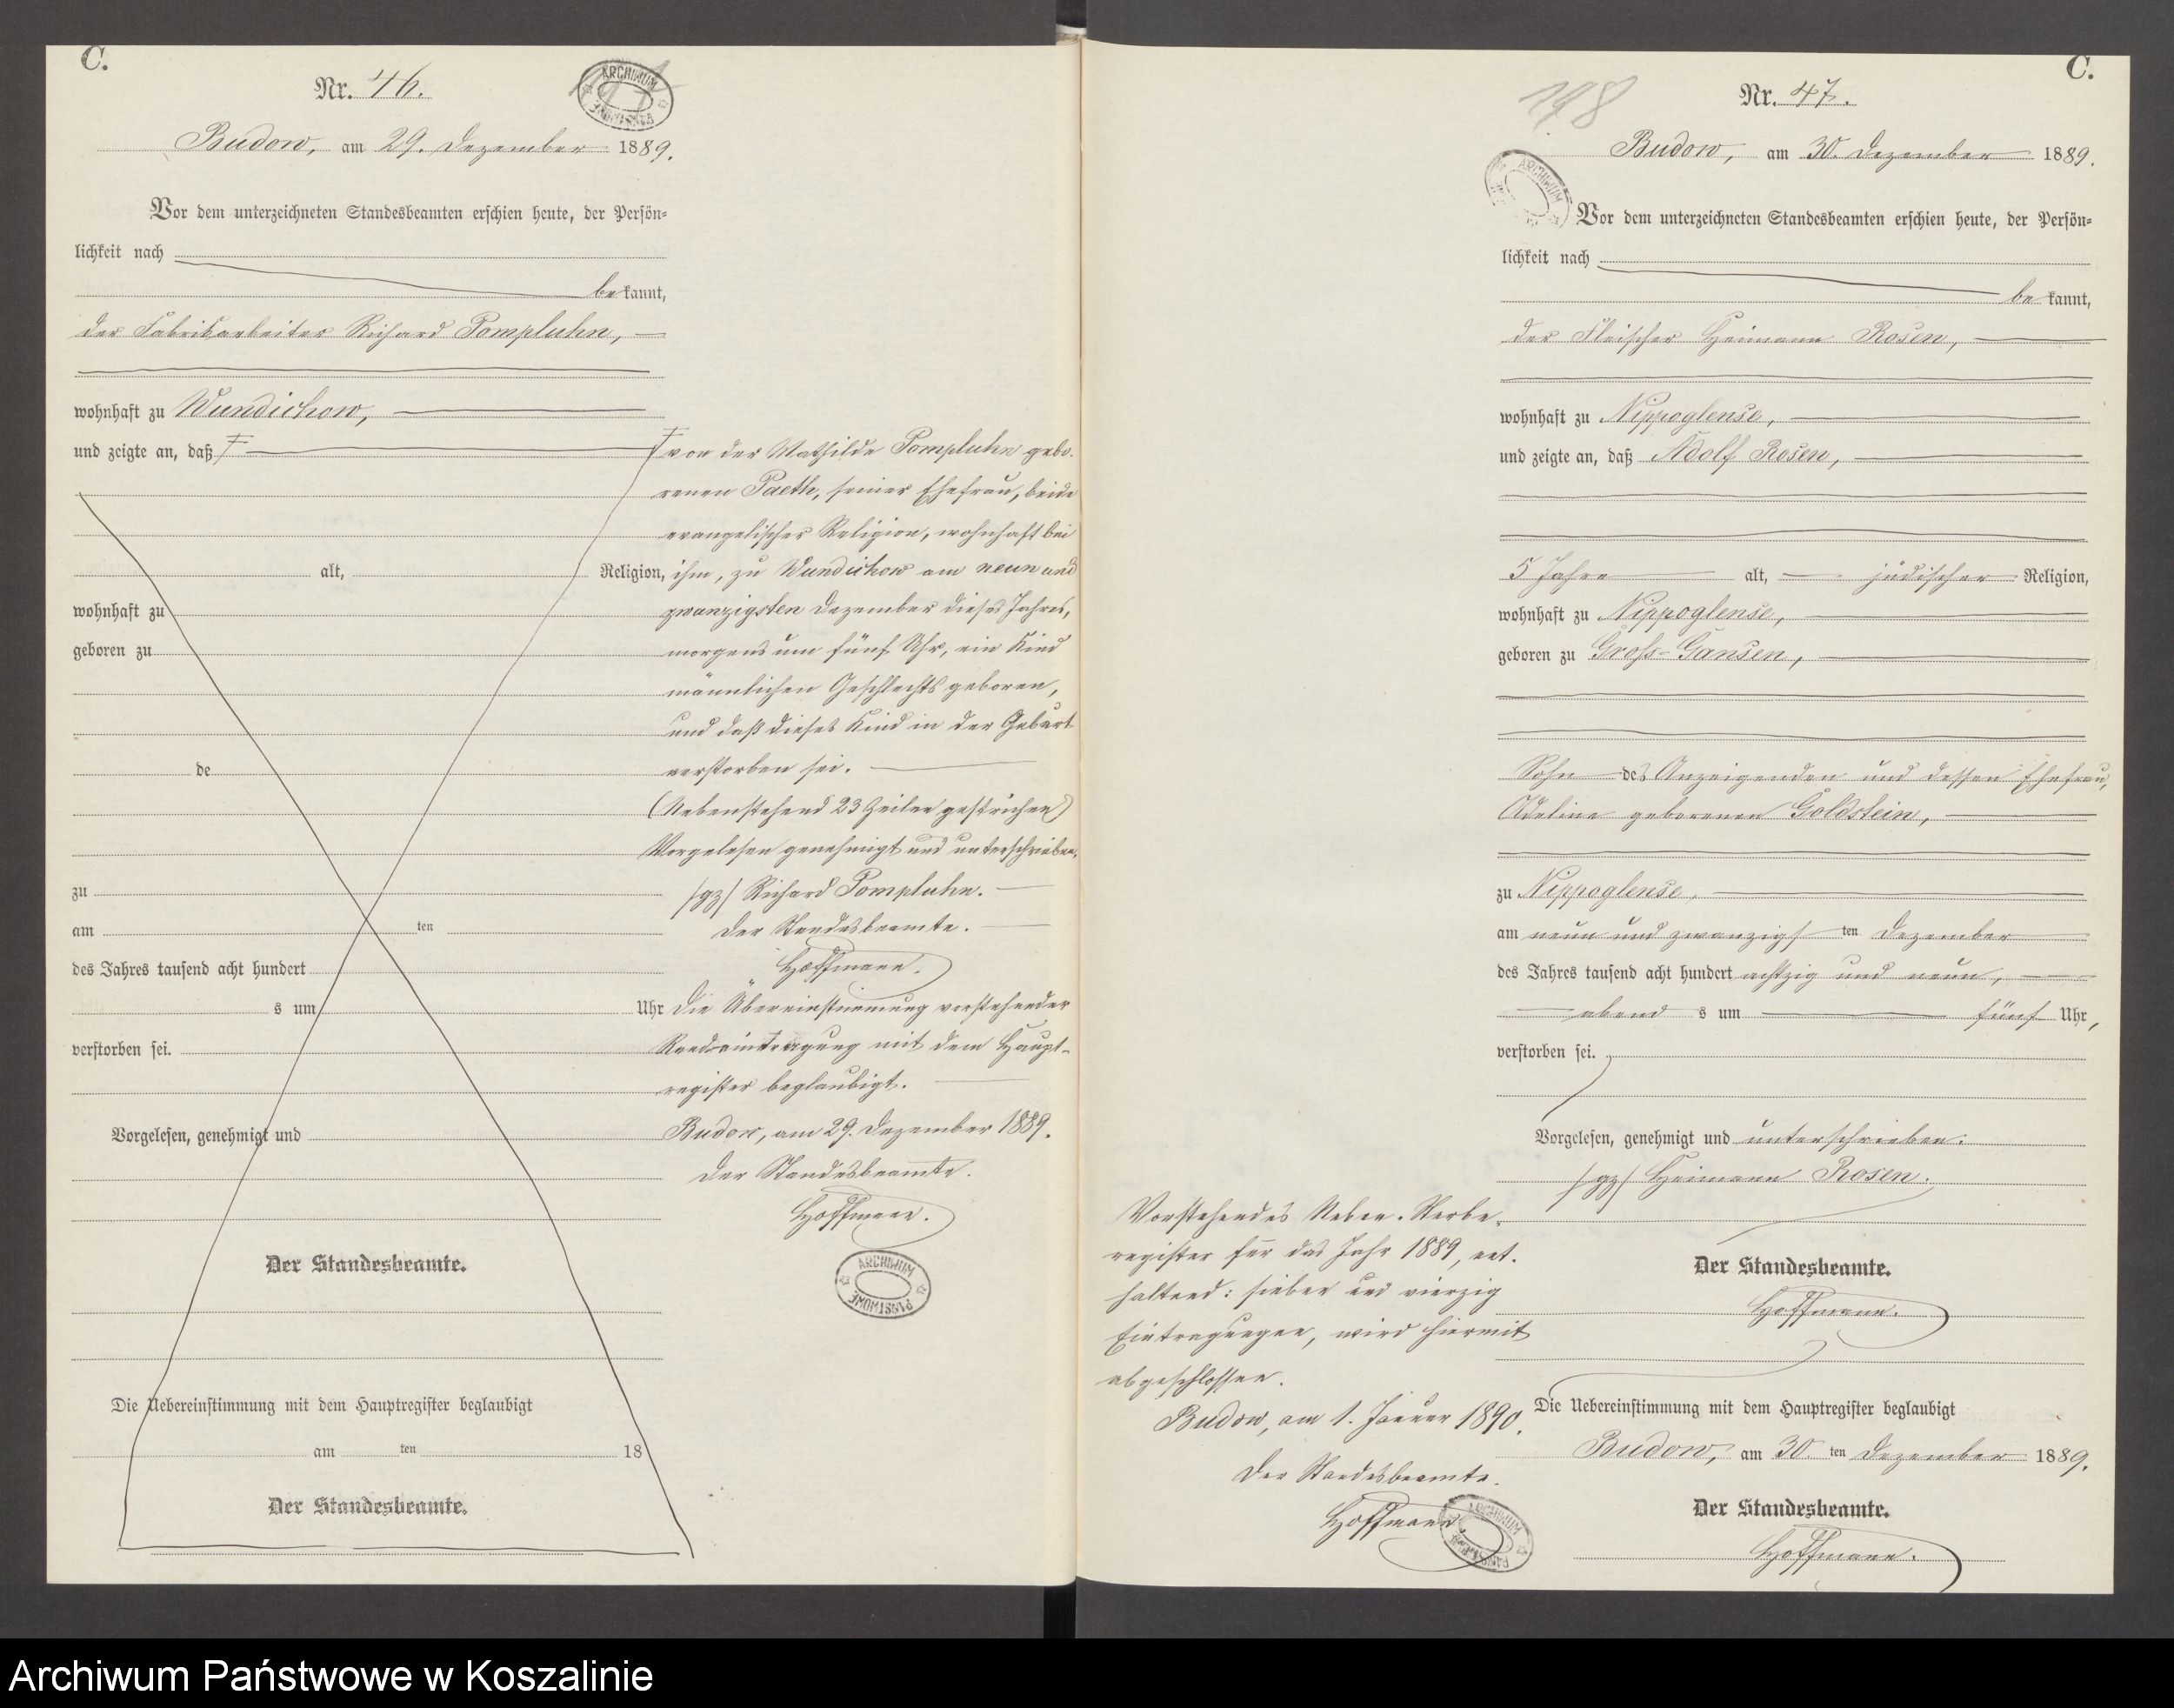 C.
Nr. 46.
ARCHIWUM PAŃSTWOWE
Budow, am 29. Dezember 1889.
Vor dem unterzeichneten Standesbeamten erschien heute, der Persön-
lichkeit nach
bekannt,
der Fabrikarbeiter Richard Pompluhn,
wohnhaft zu Wundichow,
und zeigte an, daß
von der Mathilde Pompluhn gebo-
renen Paeth, seiner Ehefrau, beide
evangelischer Religion, wohnhaft bei
alt, Religion, ihm, zu Wundichow am neun und
wohnhaft zu zwanzigsten Dezember dieses Jahres,
geboren zu morgens um fünf Uhr, ein Kind
männlichen Geschlechts geboren,
und daß dieses Kind in der Geburt
de verstorben sei.
(Nebenstehend 23 Zeilen gestrichen)
Vorgelesen genehmigt und unterschrieben.
zu /gz/ Richard Pompluhn.
am ten Der Standesbeamte.
des Jahres tausend acht hundert Hoffmann.
s um Uhr Die Übereinstimmung vorstehender
verstorben sei. Randeintragung mit dem Haupt-
register beglaubigt.
Vorgelesen, genehmigt und Budow, am 29. Dezember 1889.
Der Standesbeamte.
Hoffmann.
Der Standesbeamte.
ARCHIWUM PAŃSTWOWE
Die Uebereinstimmung mit dem Hauptregister beglaubigt
am ten 18
Der Standesbeamte.
C.
198
Nr. 47.
Budow, am 30. Dezember 1889.
ARCHIWUM
Vor dem unterzeichneten Standesbeamten erschien heute, der Persön-
lichkeit nach
bekannt,
der Fleischer Heimann Rosen,
wohnhaft zu Nippoglense,
und zeigte an, daß Adolf Rosen,
5 Jahre alt, jüdischer Religion,
wohnhaft zu Nippoglense,
geboren zu Gross-Gansen,
Sohn des Anzeigenden und dessen Ehefrau,
Adeline geborenen Goldstein,
zu Nippoglense,
am neun und zwanzigsten Dezember
des Jahres tausend acht hundert achtzig und neun,
abends um fünf Uhr,
verstorben sei.
Vorgelesen, genehmigt und unterschrieben.
/gz/ Heimann Rosen.
Der Standesbeamte.
Hoffmann.
Vorstehendes Neben-Sterbe-
register für das Jahr 1889, ent-
haltend: sieben und vierzig
Eintragungen, wird hiermit
abgeschlossen.
Budow, am 1. Januar 1890.
Der Standesbeamte.
Hoffmann.
ARCHIWUM PAŃSTWOWE
Die Uebereinstimmung mit dem Hauptregister beglaubigt
Budow, am 30. ten Dezember 1889.
Der Standesbeamte.
Hoffmann.
Archiwum Państwowe w Koszalinie